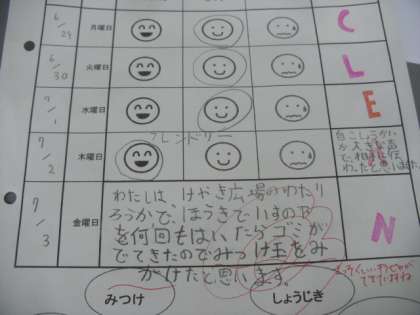 6/29 月曜日 C
6/30 火曜日 L
7/1 水曜日 E
フレンドリー
7/2 木曜日
自こしょうかい
が大きな声
で
わったと思いました
7/3 金曜日 N
わたしは、けやき広場のわたり
ろうかで、ほうきでいすの下
を何回もはいたらゴミが
でてきたのでみつけ玉をみ
がけたと思います。
みつけ
しょうじき
できたですね